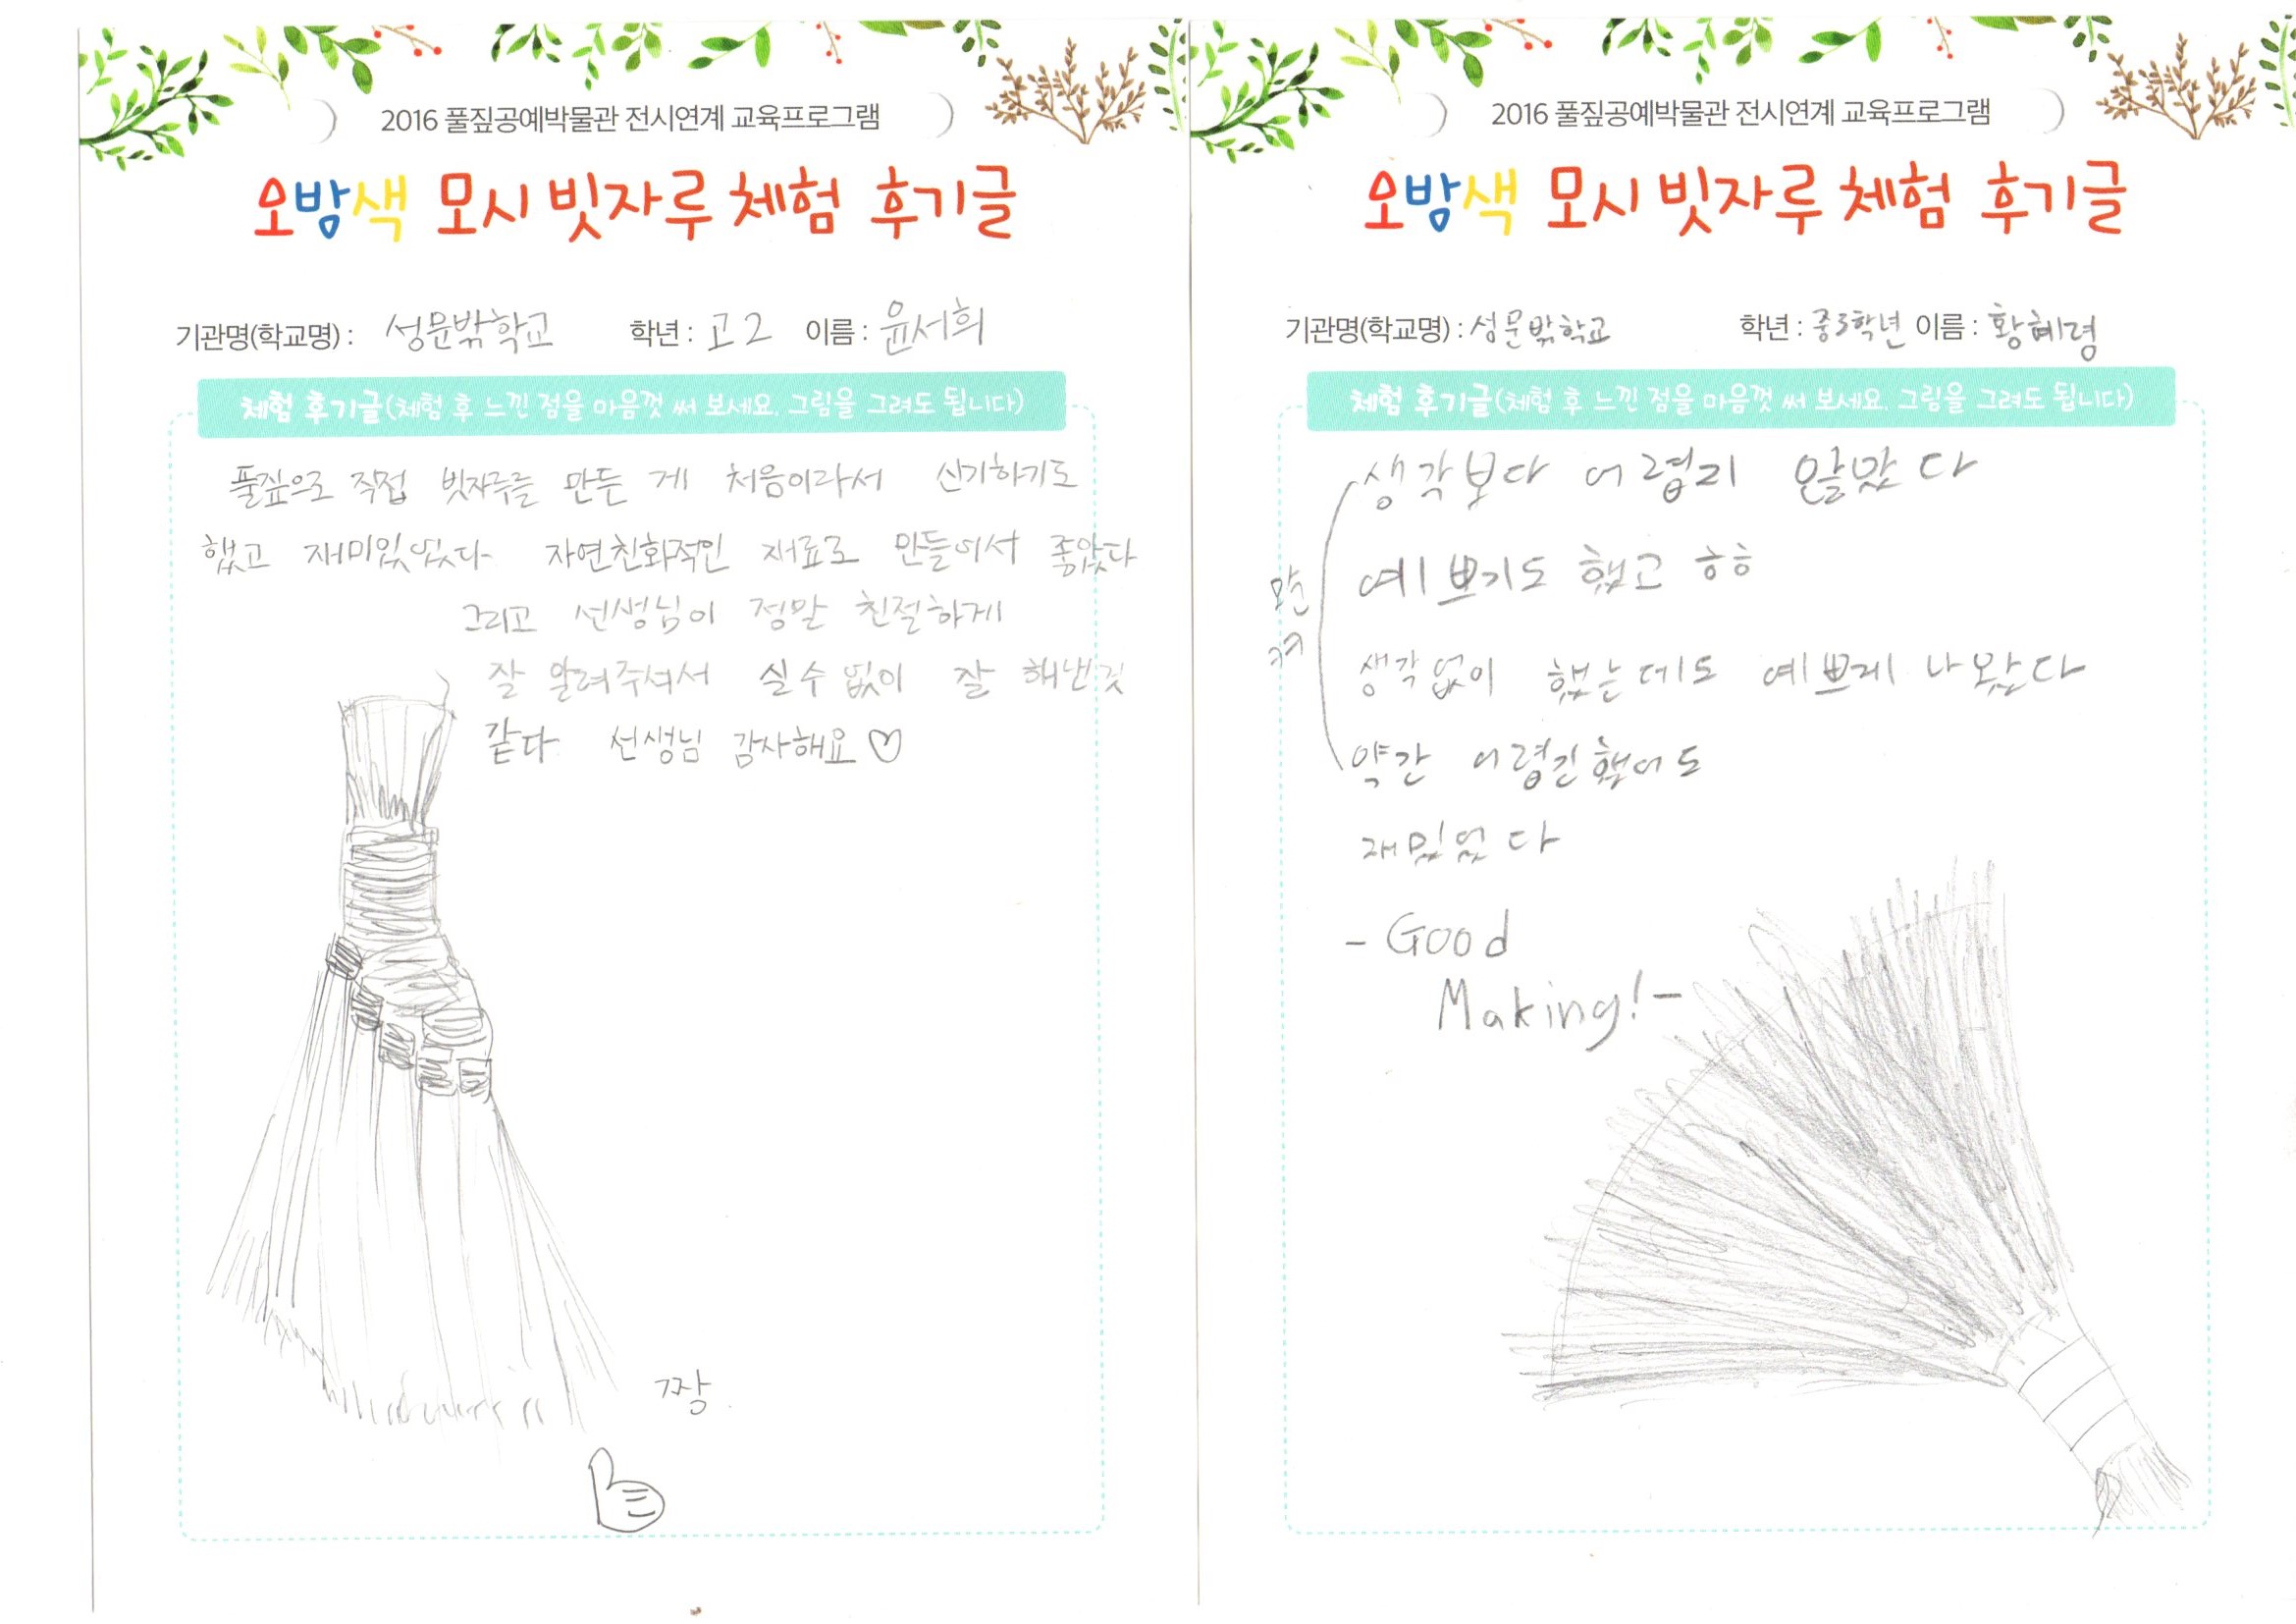 2016 풀짚공예박물관 전시연계 교육프로그램
오방색 모시 빗자루 체험 후기글
기관명(학교명) : 성문밖학교 학년 : 고2 이름 : 윤서희
체험 후기글(체험 후 느낀 점을 마음껏 써 보세요. 그림을 그려도 됩니다)
풀짚으로 직접 빗자루를 만든 게 처음이라서 신기하기도
했고 재미있었다 자연친화적인 재료로 만들어서 좋았다
그리고 선생님이 정말 친절하게
잘 알려주셔서 실수없이 잘 해낸것
같다 선생님 감사해요♡
짱
2016 풀짚공예박물관 전시연계 교육프로그램
오방색 모시 빗자루 체험 후기글
기관명(학교명) : 성문밖학교 학년 : 중3학년 이름 : 황혜령
체험 후기글(체험 후 느낀 점을 마음껏 써 보세요. 그림을 그려도 됩니다)
생각보다 어렵지 않았다
예쁘기도 했고 ㅎㅎ
생각없이 했는데도 예쁘게 나왔다
약간 어렵긴했어도
재밌었다
- Good
Making! -